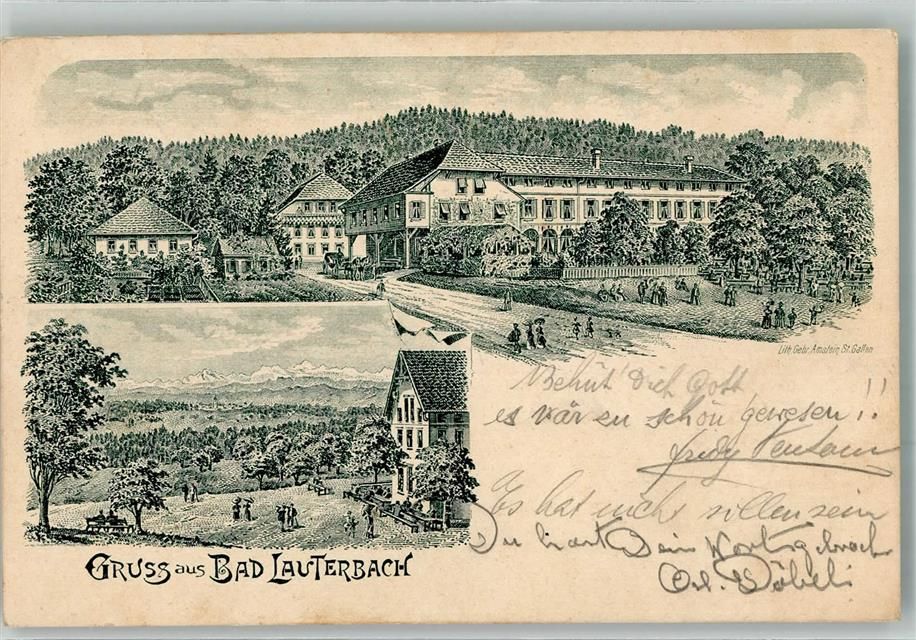 Lith. Gebr. Amstein, St. Gallen
Behüt' Dich Gott
es wär en schön gewesen!!
Es hat nicht sollen sein
Du hast Dein Wort gebroche
GRUSS aus BAD LAUTERBACH